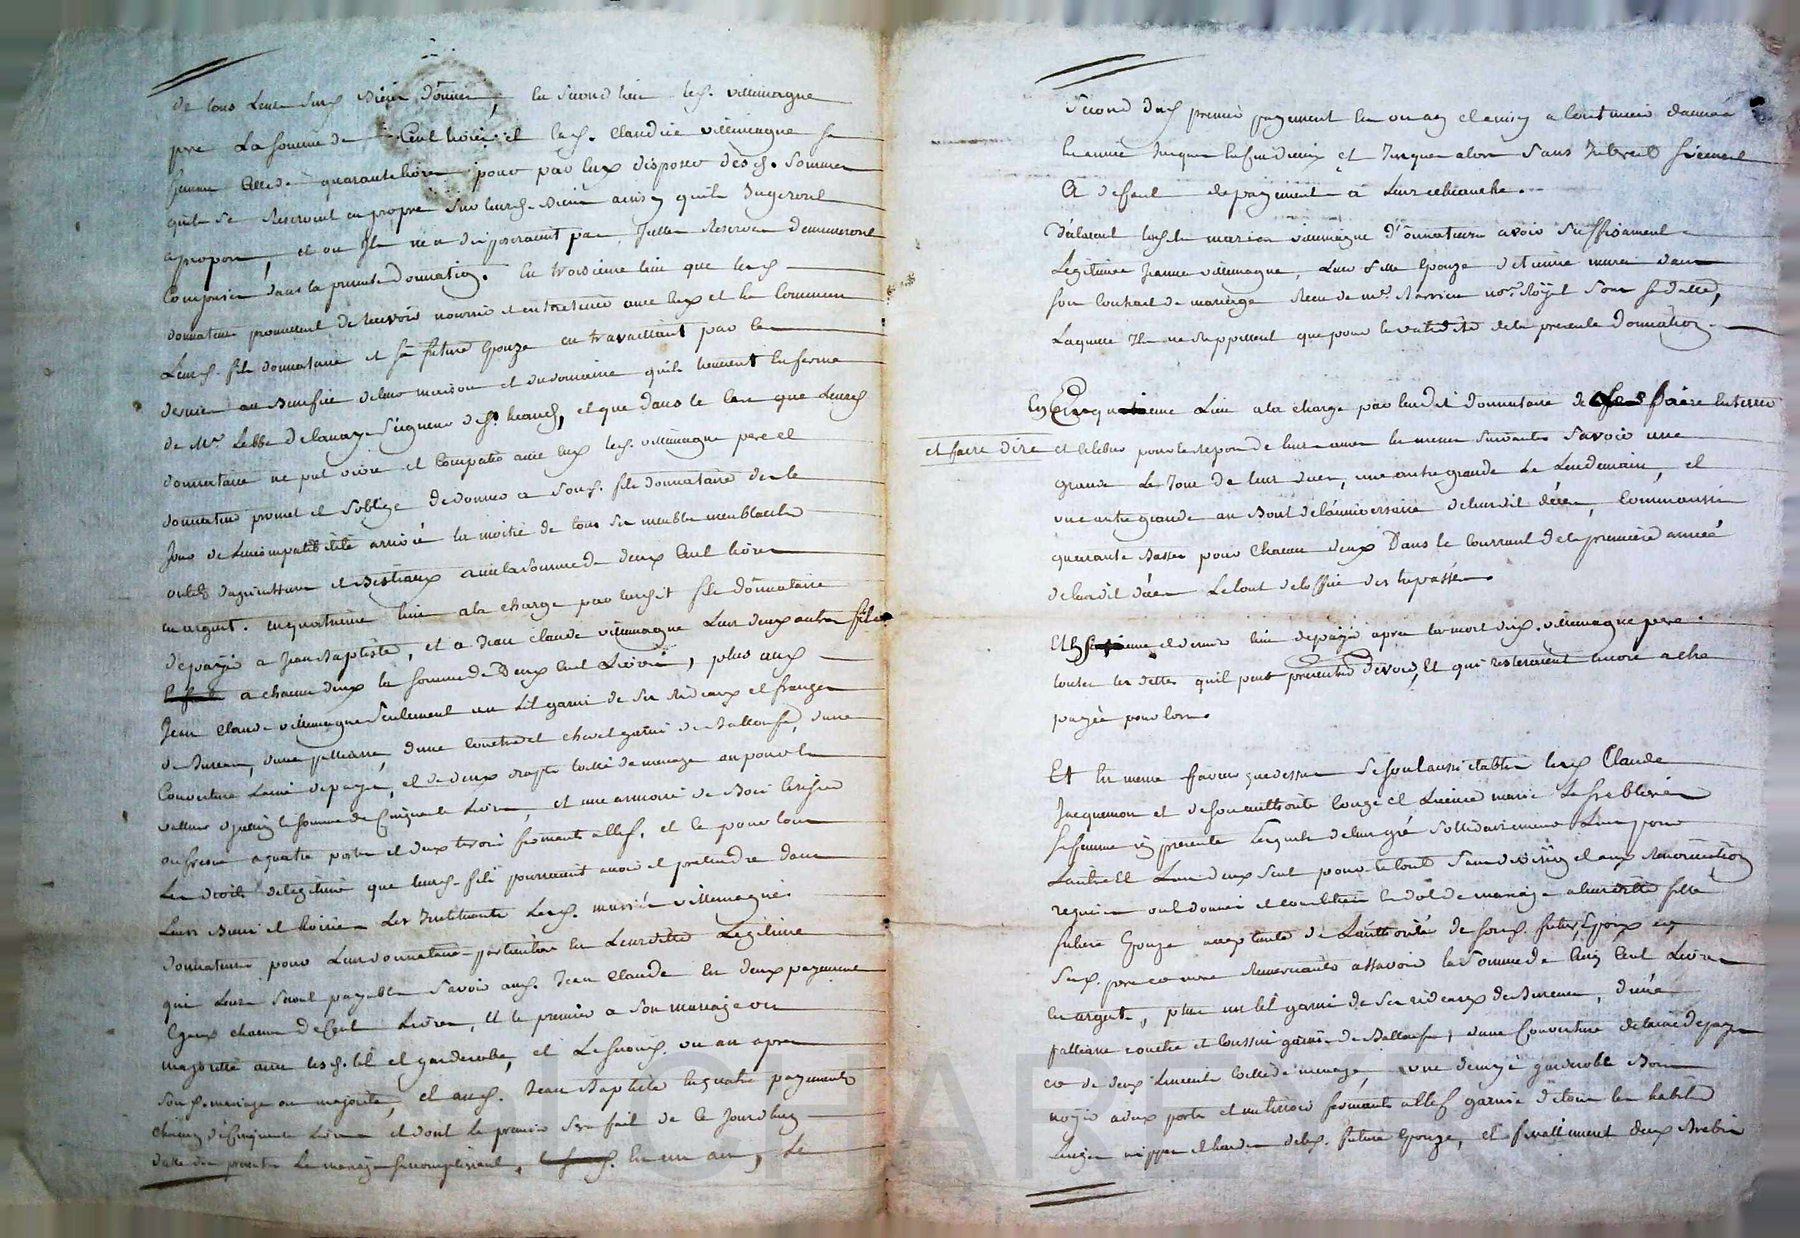 de tous leurs susd. biens donnés, en second lieu led. villemagne
pere la somme de Cent livres et lad. Claudie villemagne sa
femme celle de quarante livres pour par eux disposer desd. sommes
quils se reservent en propre sur leursd. biens ainsy quils Jugeront
apropos, et ou Ils n'en disposeraient pas, Telles Reserves demeureront
Comprises dans la presente donnation. En troisieme lieu que lesd.
donnateurs promettent de recevoir nourrir et entretenir avec eux et en Commun
Leursd. fils donnataire et sa future Epouze en travaillant par ces
derniers au Benefice de leur maison et du domaine quils tiennent en ferme
de Mr. Labbé Seigneur de St. et que dans le Cas que Leursd.
donnataire ne put vivre et Compatir avec eux led. villemagne pere et
donnateur promet et s'oblige de donner a sond. fils donnataire des le
Jour de l'incompatibilité arrivée la moitié de tous ses meubles meublants
outils dagriculture et Bestiaux avec la somme de deux Cent livres
en argent. En quatrieme lieu a la charge par leursdit fils donnataire
de payer a Jean Baptiste, et a Jean Claude villemagne Leurs deux autres fils
a chacun deux la somme de Deux Cent Livres, plus aud.
Jean Claude villemagne seulement un Lit garni de ses Rideaux et franges
de Bureau, d'une paillasse, d'une couette et chevet garni de Ballouffe, d'une
Couverture Laine de payis, et de deux draps toille de menage ou pour la
valleur d'yceux la somme de Cinquante Livres, et une armoire de Bois Cerisier
ou fresne a quatre portes et deux tiroirs fermants a clef. et ce pour tous
Les droits de legitime que leursd. fils pourroient avoir et pretendre dans
Leurs Biens et hoiries Les Instituants Lesd. mariés villemagne
donnateurs pour Leurs donnataires particuliers en Leursdittes Legitimes
qui Leurs seront payables savoir aud. Jean Claude en deux payements
Egaux chacun de Cent Livres, et le premier a son mariage ou
majorité avec lesd. lit et garderobe, et Le second. un an apres
sond. mariage ou majorité, et aud. Jean Baptiste en quatre payements
chacun de Cinquante Livres et dont le premier sera fait de ce Jourdhuy
datte des presentes Le mariage s'accomplissant, en un an, Le
Second dud. premier payement en un an et ainsy a Continuer d'année
en année Jusques en fin d'iceux et Jusques alors Sans Interet sicenest
A defaut de payement a Leurs echeances.
Déclarent lesdits mariés villemagne D'onnateurs avoir suffisament
Légitimé Jeanne villemagne, Leur fille Epouze d'etienne murei dans
son Contract de mariage Recu de me. no.re Royal Sous sa datte,
Laquelle Ils ne Rappellent que pour la validité de la presente Donnation.
En Cinquieme Lieu a la charge par leurdit donnataire de Les faire Enterrer
et faire dire et celebrer pour le repos de leurs ames les messes suivantes Savoir une
grande Le Jour de leur deces, une autre grande Le Lendemain, et
une autre grande au Bout de l'anniversaire de leurdit décès, Comme aussi
quarante Basses pour Chacun deux Dans le Courrant de la premiere année
de leurdit deces Le tout de loffice des trepassés.
Et en sixieme et dernier lieu de payer apres la mort dud. villemagne pere
toutes les dettes quil peut presentement devoir, Et qui resteroient encore a etre
payées pour lors.
Et en meme faveur que dessus Se sont aussi etablis lesd. Claude
Jacquemon et de son authorité Louze et Luenne marie
sa femme icy presents Lesquels de leur gré sollidairement Lun pour
Lautre Et Lun deux Seul pour le tout Sans division et aux Renonciations
requises ont donné et constitué en dot de mariage a leurditte fille
future Epouze acceptante de L'authorité de sond. futur Epoux et
Sud. pere comme Remerciants assavoir la somme de Cinq Cent Livres
En argent, plus un lit garni de ses rideaux de Bureau, d'une
paillasse couette et coussin garnie de Ballouffe, d'une Couverture de laine de payis
et de deux Linceuls toille de menage, une demye garderobe Bois
noyer a deux portes et un tiroir fermants a clef garnie d'icelle les habits
Linges nippes et hardes de lad. future Epouze, et finallement deux Brebis